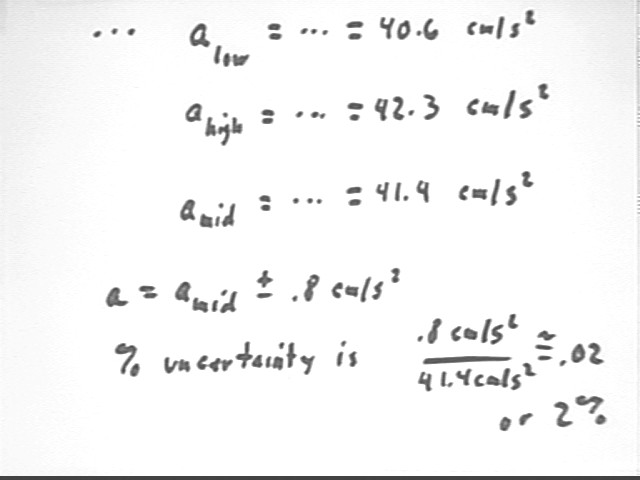 ... a_low = ... = 40.6 cm/s²
a_high = ... = 42.3 cm/s²
a_mid = ... = 41.4 cm/s²
a = a_mid ± .8 cm/s²
% uncertainty is .8 cm/s² / 41.4 cm/s² ≅ .02
or 2%